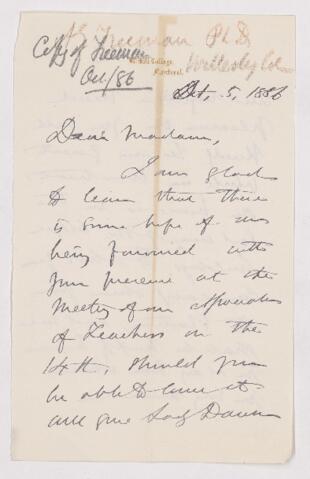 Freeman Ph.D.
Copy of Freeman
Oct/86
College,
Montreal.
Wellesley Col
Oct, 5, 1886
Dear Madam,
I am glad
to learn that there
is some hope of our
being favoured with
your presence at the
Meeting of our Association
of Teachers on the
14th, should you
be able to come it
will give Lady Dawson